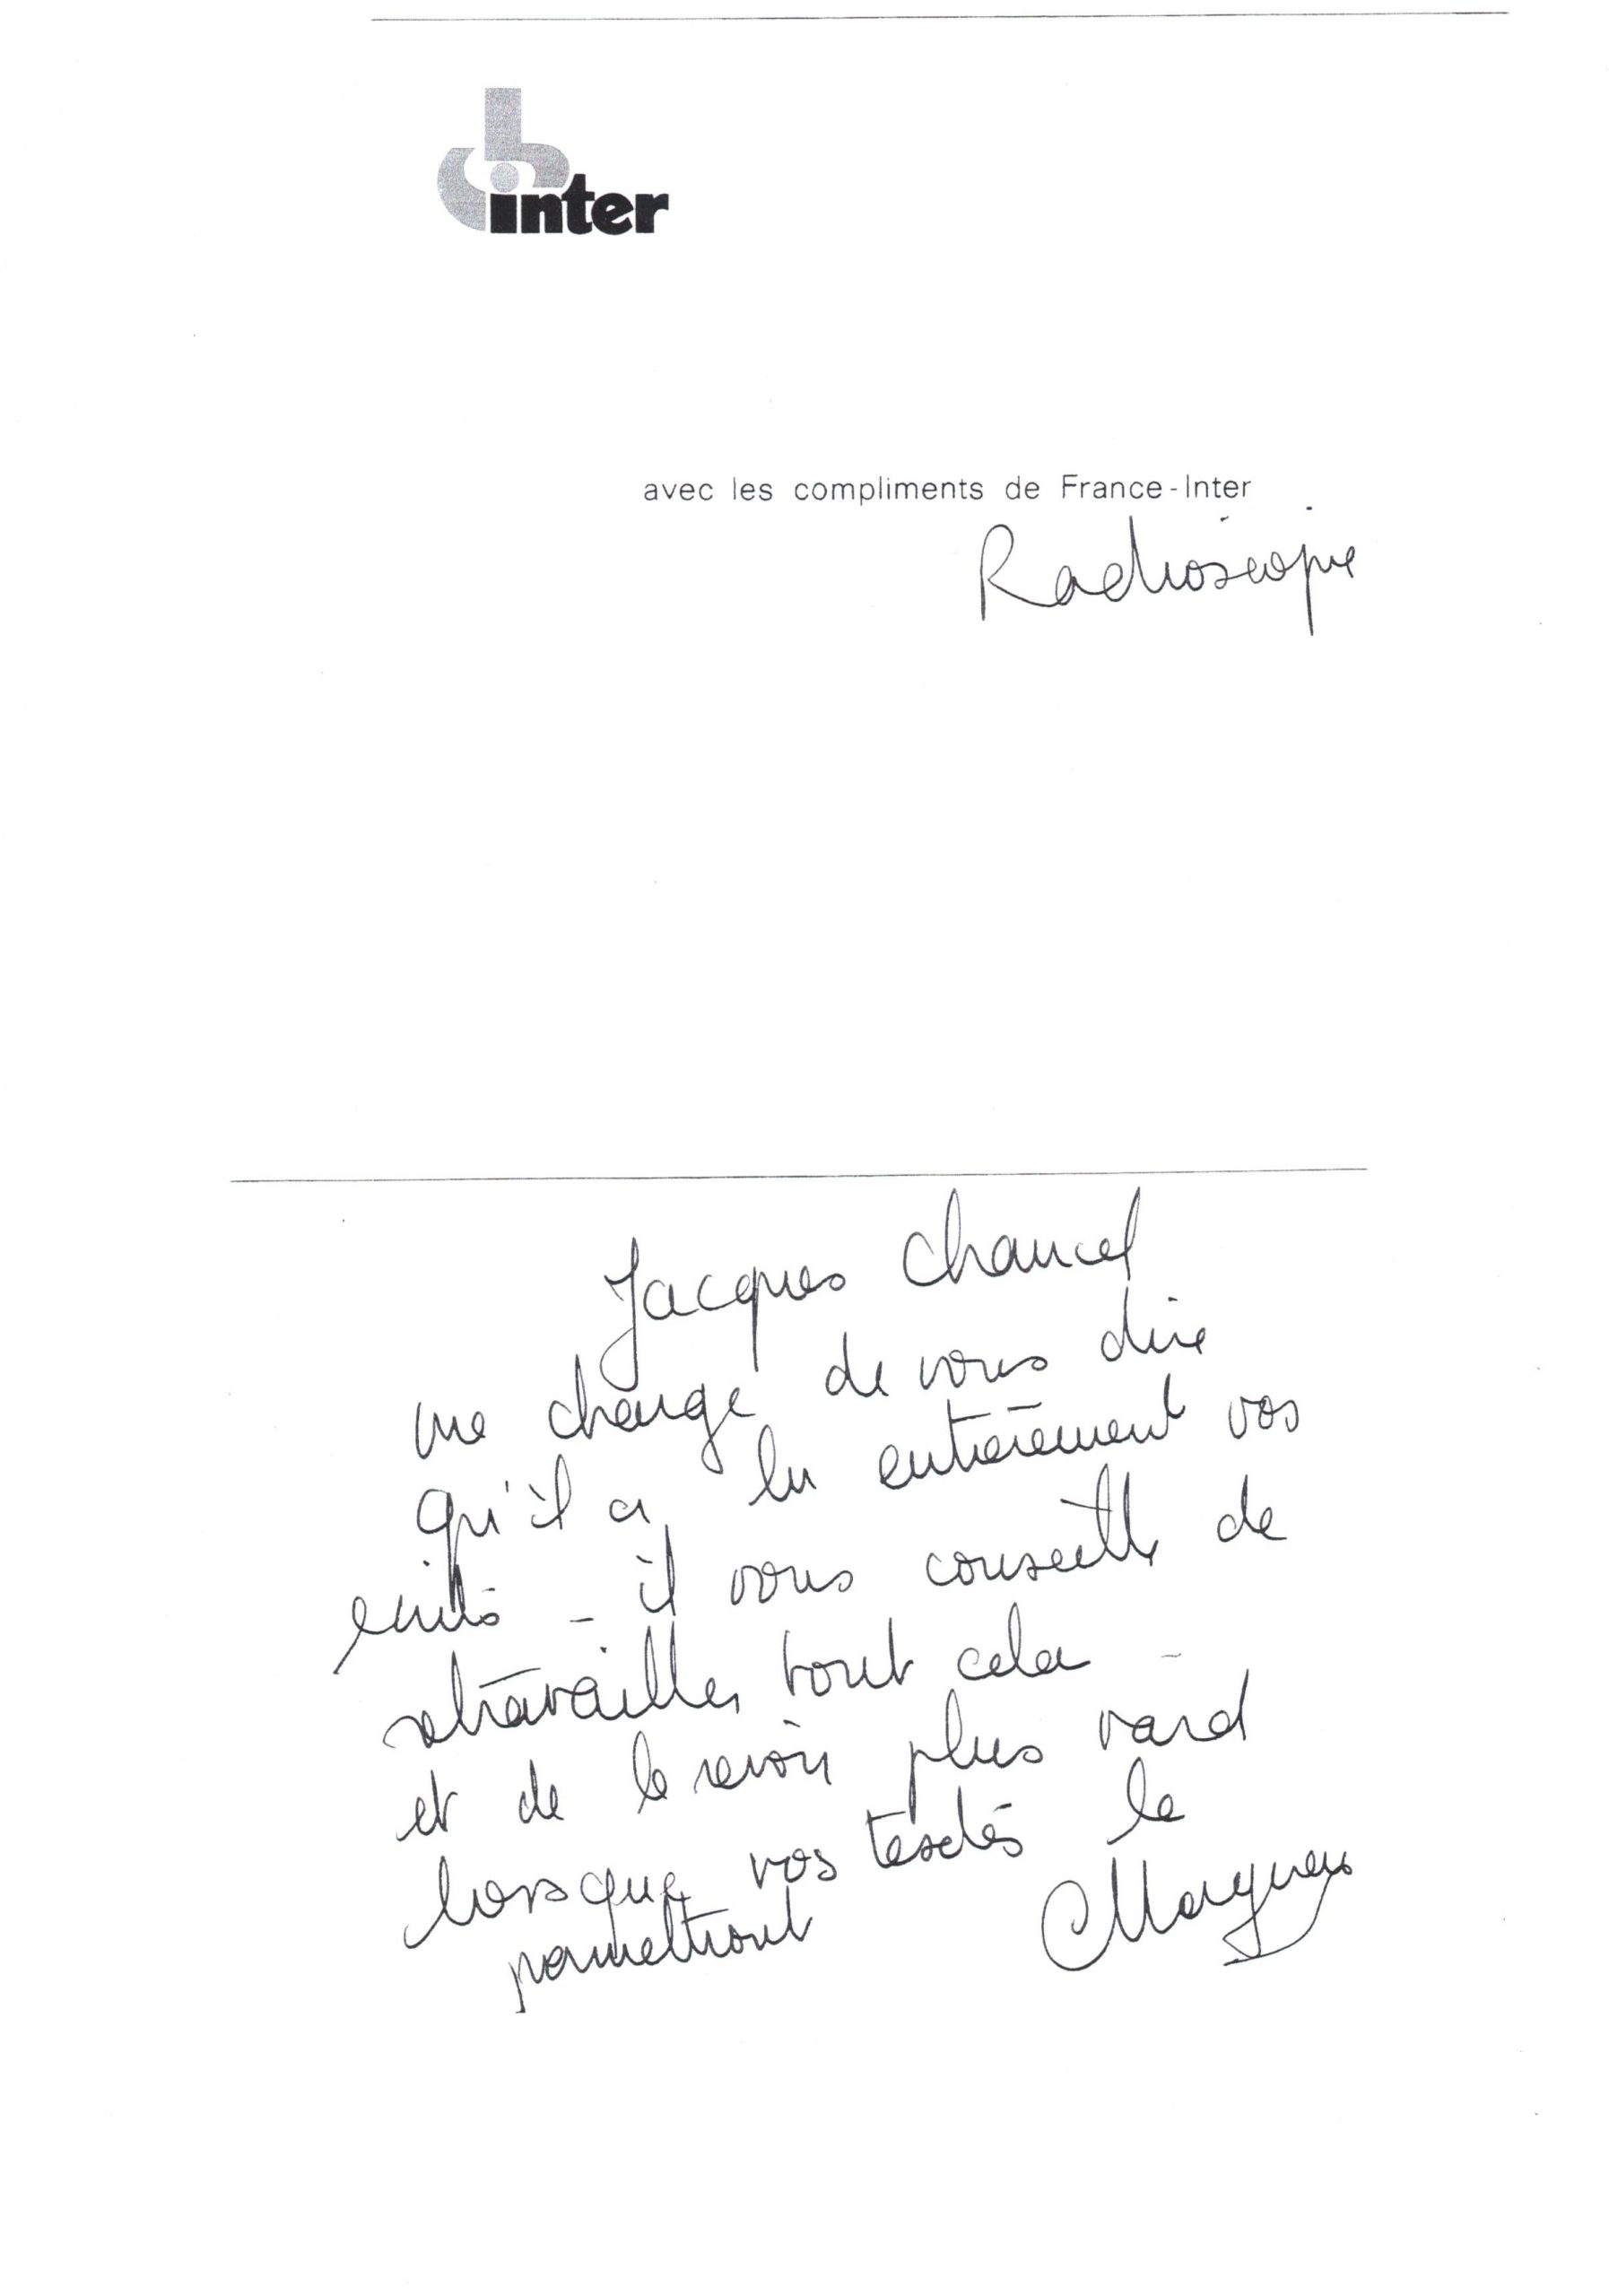 inter
avec les compliments de France-Inter
Radioscopie
Jacques Chancel
me charge de vous dire
qu'il a lu entièrement vos
écrits - il vous conseille de
retravailler tout cela -
et de le revoir plus tard
lorsque vos textes le
permettront